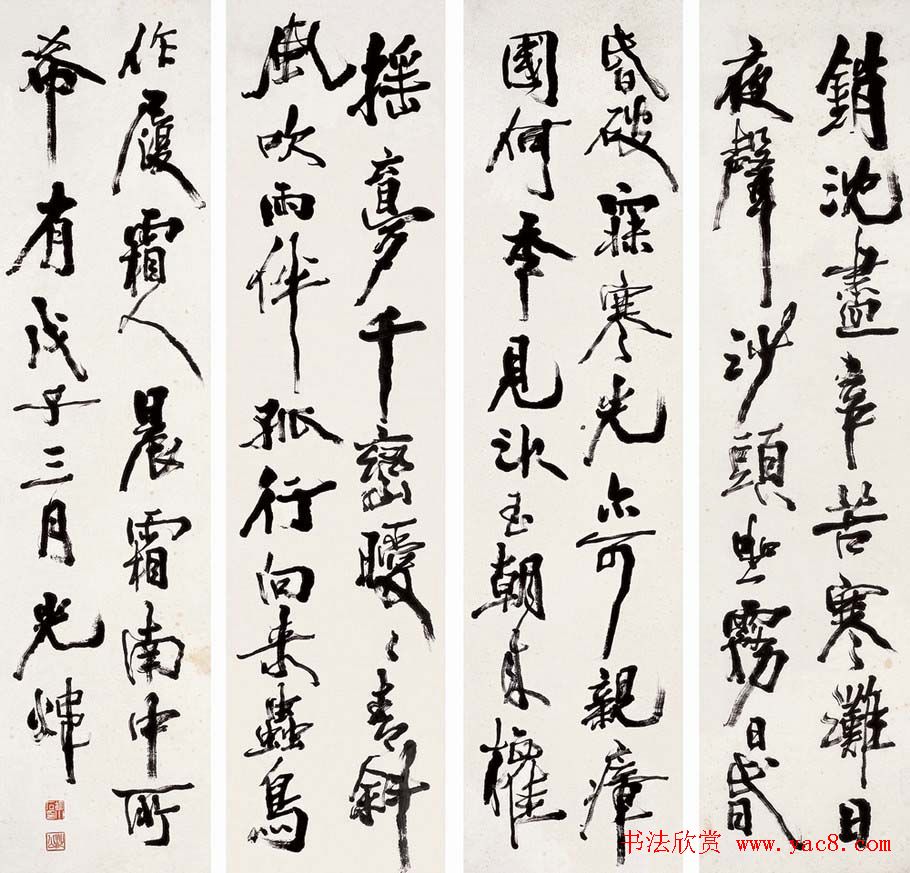 銷沈盡辛苦寒灘日
夜聲沙頭霧日昏
昏破寐寒光亦可親瘴
國何年見冰玉朝來權
搖夢千巒曖〻青斜
風吹雨伴孤行向來蟲鳥
作履霜人晨霜南中所
希有戊子三月光煒
书法欣赏 www.yac8.com